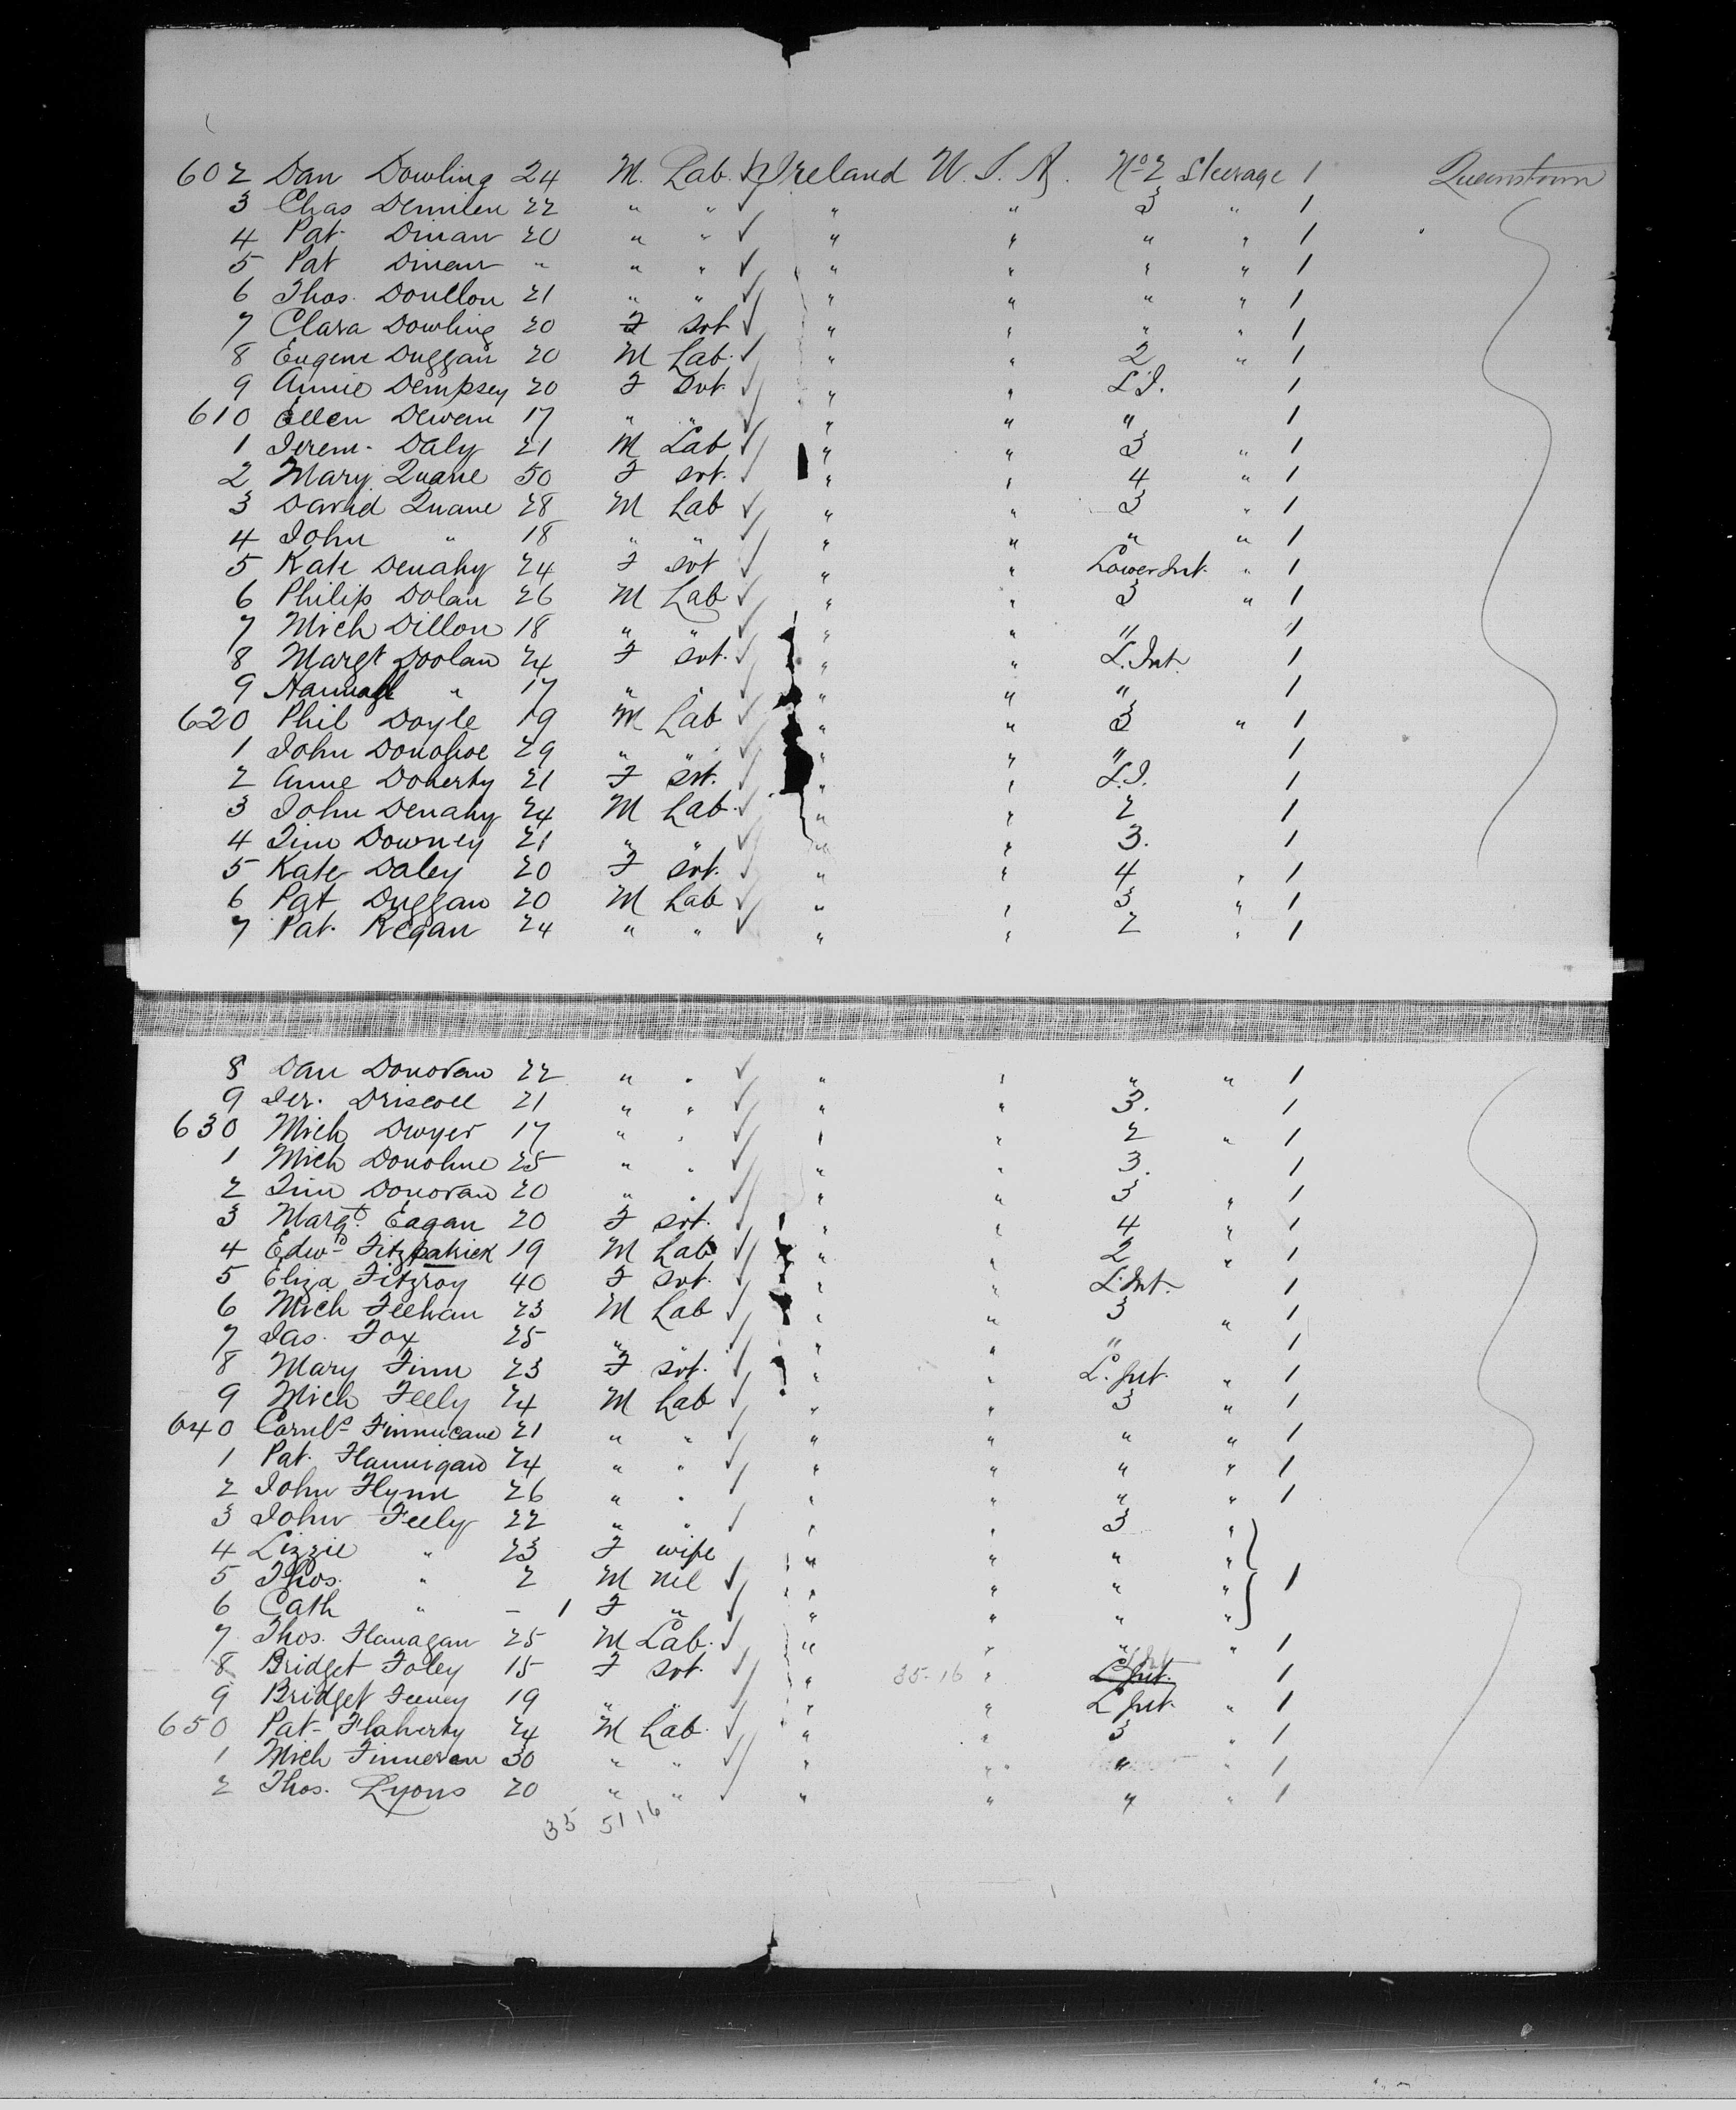 602 Dan Dowling 24 M. Lab. Ireland U. S. A. No 2 Steerage 1 Queenstown
3 Chas 22 " " " " 3 " 1
4 Pat Dinan 20 " " " " " " 1
5 Pat Dinan " " " " " " " 1
6 Thos. Donllon 21 " " " " " " 1
7 Clara Dowling 20 F Svt " " " " 1
8 Eugene Duggan 20 M Lab. " " 2 " 1
9 Annie Dempsey 20 F Svt. " " L.I. 1
610 Ellen Dewern 17 " " " " " 1
1 Jerem- Daly 21 M Lab " " 3 " 1
2 Mary Quane 50 F Svt. " " 4 " 1
3 David Quane 28 M Lab " " 3 " 1
4 John " 18 " " " " " " 1
5 Kate Denahy 24 F Svt " " Lower Int. " 1
6 Philip Dolan 26 M Lab " " 3 " 1
7 Mich Dillon 18 " " " " " 1
8 Margt Doolan 24 F Svt. " " L. Int 1
9 Hannah " 17 " " " " " 1
620 Phil Doyle 19 M Lab " " 3 " 1
1 John Donohoe 29 " " " " " 1
2 Anne Doherty 21 F Svt. " " L.I. 1
3 John Denahy 24 M Lab. " " 2 1
4 Tim Downey 21 " " " " 3. 1
5 Kate Daley 20 F Svt. " " 4 " 1
6 Pat Duggan 20 M Lab " " 3 " 1
7 Pat. Regan 24 " " " " 2 " 1
8 Dan Donovan 22 " " " " " " 1
9 Jer. Driscoll 21 " " " " 3. 1
630 Mich Dwyer 17 " " " " 2 " 1
1 Mich Donohue 25 " " " " 3. 1
2 Tim Donovan 20 " " " " 3 " 1
3 Margt. Eagan 20 F Svt. " " 4 " 1
4 Edwd Fitzpatrick 19 M Lab " " 2 " 1
5 Eliza Fitzroy 40 F Svt. " " L. Int. 1
6 Mich Feehan 23 M Lab " " 3 " 1
7 Jas. Fox 25 " " " " 1
8 Mary Finn 23 F Svt. " " L. Int. " 1
9 Mich Feely 24 M Lab " " 3 " 1
640 Cornls Finnucane 21 " " " " " " 1
1 Pat. Flannigan 24 " " " " " " 1
2 John Flynn 26 " " " " " " 1
3 John Feely 22 " " " " 3 "
4 Lizzie " 23 F wife " " " "
5 Thos. " 2 M nil " " " " 1
6 Cath " - 1 F " " " " "
7 Thos. Flanagan 25 M Lab. " " " " 1
8 Bridget Foley 15 F Svt. " 35-16 " L. Int. 1
9 Bridget Feeney 19 " " " " L Int. " 1
650 Pat- Flaherty 24 M Lab. " " 3 " 1
1 Mich Finneran 30 " " " " " " 1
2 Thos. Lyons 20 " " " " " " 1
35 51 16